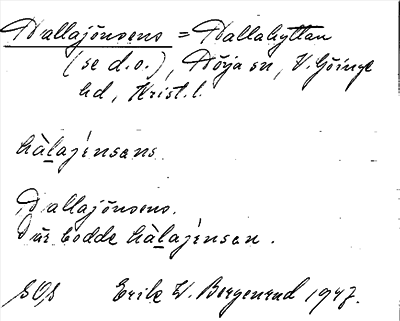 Hallajönsens = Hallahyttan
(se d.o.), Nörja sn, V. Göinge
hd, Krist. l.
hàlajénsens
Hallajönsens.
Där bodde hàlajénsen.
SOS Erik W. Bergenrud 1947.